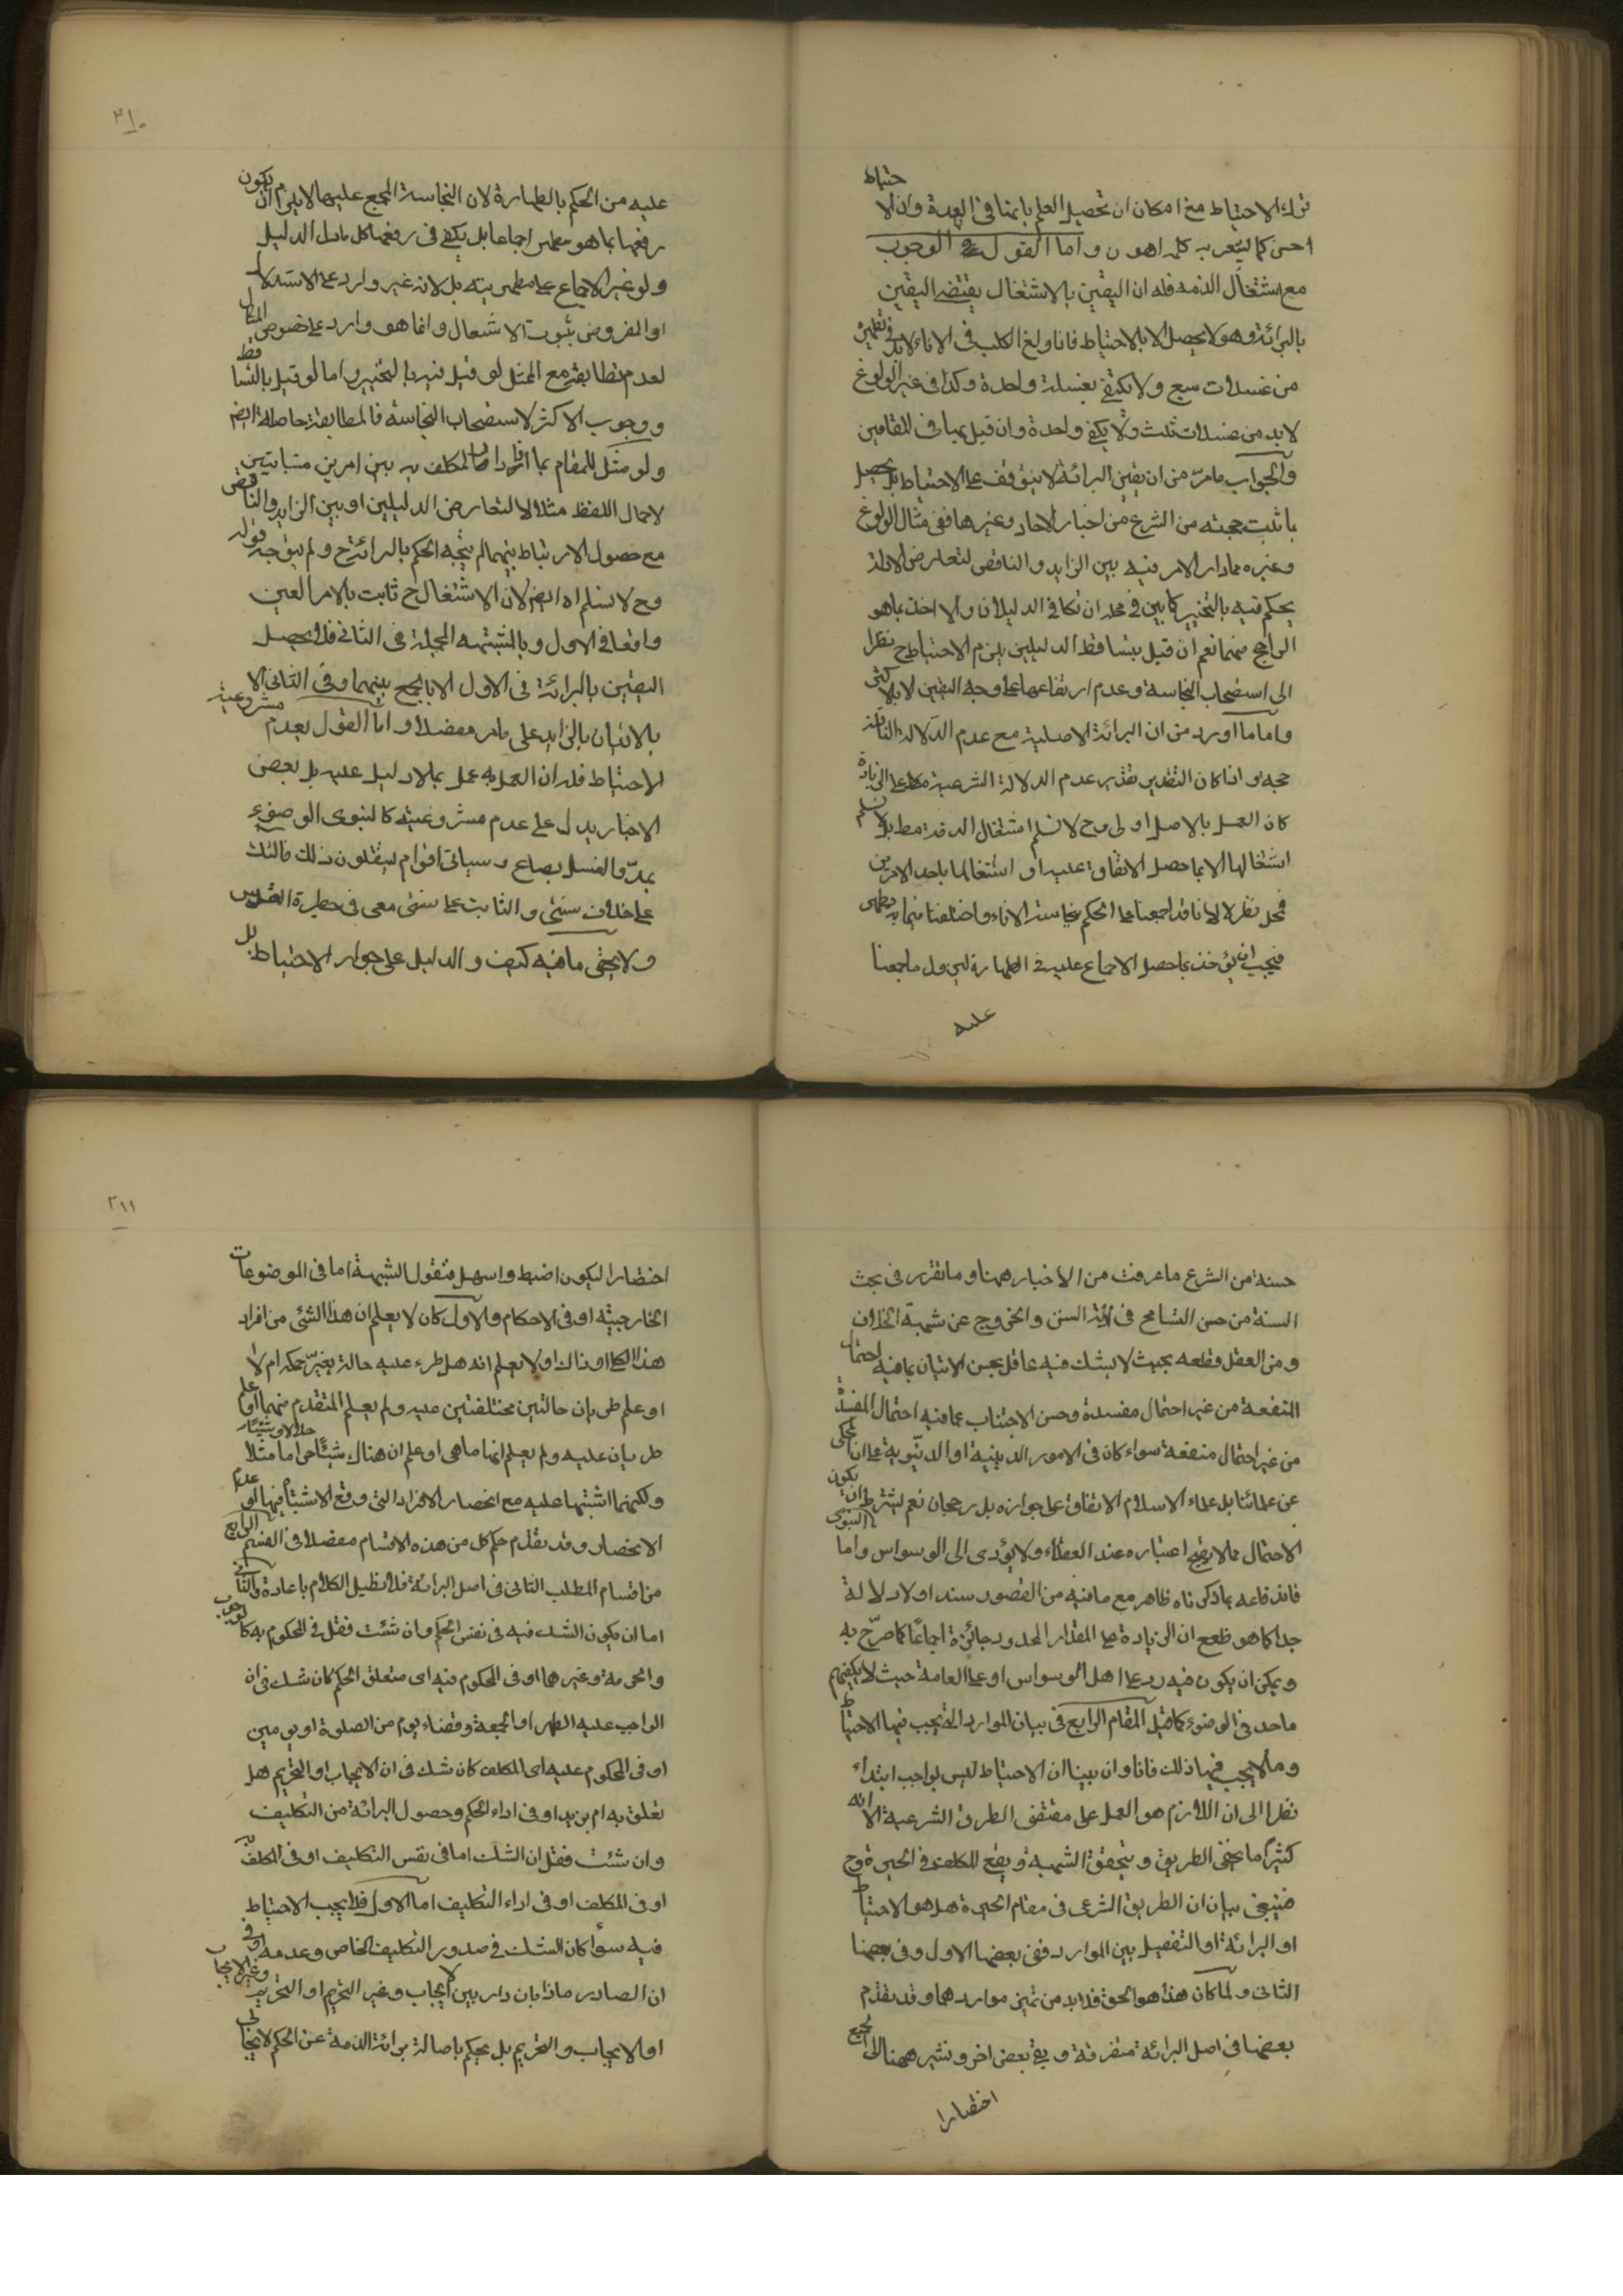 ترك الاحتياط مع امكان ان تحصيل العلم بامتنا فى العهدة وان الاحتياط
احسن كما يشعر به كلمه اهون واما القول فى الوجوب
مع اشتغال الذمه فله ان اليقين بالاشتغال يقتضى اليقين
بالبرائة وهو لا يحصل الا بالاحتياط فاذا ولغ الكلب فى الاناء لابد فى تطهيره
من غسلات سبع ولا يكتفى بغسلة واحدة وكذا فى غير الولوغ
لابد من غسلات ثلث ولا يكفى واحدة وان قيل بها فى المقامين
والجواب مامرّ من ان يقين البرائة لا يتوقف على الاحتياط بل يحصل
بما ثبت حجيته من الشرع من اخبار الاحاد وغيرها ففى مثال الولوغ
وغيره مما دار الامر فيه بين الزايد والناقص لتعارض الادلة
يحكم فيه بالتخيير كما بين فى محله ان تكافى الدليلان والا اخذ بما هو
الراجح منهما نعم ان قيل بتساقط الدليلين يلزم الاحتياط ح نظرا
الى استصحاب النجاسة وعدم ارتفاعها على وجه اليقين الا بالاكثر
واما ما اورد من ان البرائة الاصلية مع عدم الدلالة الناقلة
حجة واذا كان التقدير تقدير عدم الدلالة الشرعية على الزيادة
كان العمل بالاصل اولى وح لا نسلم اشتغال الذمة مط بل لا نسلم
اشتغالها الا بما حصل الاتفاق عليه او اشتغالها باحد الامرين
فمحل نظر لانا قد اجمعنا على الحكم بنجاسة الاناء واختلفنا فيما به يطهر
فيجب ان يؤخذ بما حصل الاجماع عليه فى الطهارة ليزول ما اجمعنا
عليه
٢١٠
عليه من الحكم بالطهارة لان النجاسة المجمع عليها لا يلزم ان يكون
رفعها بما هو مطهر اجماعا بل يكفى فى رفعها كل ما دل الدليل
ولو غير الاجماع على مطهريته بل لانه غير وارد على الاستدلال
او المفروض ثبوت الاشتعال وانما هو وارد على خصوص المثال
لعدم تطابقه مع الممثل لو قيل فيه بالتخيير واما لو قيل بالتساقط
ووجوب الاكثر لاستصحاب النجاسة فالمطابقة حاصلة ايضا
ولو مثل للمقام بما اذا دار المكلف به بين امرين متباينين
لاجمال اللفظ مثلا لا لتعارض الدليلين او بين الزايد والناقص
مع حصول الارتباط بينهما لم يتجه الحكم بالبرائة ح ولم يتوجه قوله
وح لا نسلم اه ايضا لان الاشتغال ح ثابت بالامر المعين
واقعا فى الاول وبالمثبتة المجملة فى الثانى فلا يحصل
اليقين بالبرائة فى الاول الا بالجمع بينهما وفى الثانى الا
بالاتيان بالزايد على مامر مفصلا واما القول بعدم مشروعية
الاحتياط فله ان العمل به عمل بما لا دليل عليه بل بعض
الاخبار يدل على عدم مشروعيته كالنبوى الوضوء
بمدّ والغسل بصاع وسياتى اقوام يستقلون ذلك فاولئك
على خلاف سنتى والثابت على سنتى معى فى حظيرة القدس
ولا يخفى ما فيه كيف والدليل على جواز الاحتياط بل
حسنه من الشرع ما عرفت من الاخبار ههنا وما تقرر فى بحث
السنة من حسن التسامح فى ادلة السنن والخروج عن شبهة الخلاف
ومن العقل قطعه بحيث لا يشك فيه عاقل بحسن الاتيان بما فيه احتمال
المنفعة من غير احتمال مفسدة وحسن الاجتناب عما فيه احتمال المفسدة
من غير احتمال منفعة سواء كان فى الامور الدينية او الدنيوية على ان المحكى
عن علمائنا بل علماء الاسلام الاتفاق على جوازه بل رجحان نعم يشترط ان يكون
الاحتمال مما لا يقبح اعتباره عند العقلاء ولا يؤدى الى الوسواس واما النبوى
فاندفاعه بما ذكرناه ظاهر مع ما فيه من القصور سندا ودلالة
جدا كما هو ظ مع ان الزيادة على المقدار المحدود جائزة اجماعًا كما صرّح به
ويمكن ان يكون فيه رد على اهل الوسواس او على العامة حيث لا يكفيهم
ما حد فى الوضوء كما قيل المقام الرابع فى بيان الموارد التى يجب فيها الاحتياط
وما لا يجب فيها ذلك فانا وان بينا ان الاحتياط ليس بواجب ابتداء
نظرا الى ان اللازم هو العمل على مقتضى الطرق الشرعية الا انه
كثيرًا ما يخفى الطريق ويتحقق الشبهة ويقع المكلف فى الحيرة وح
فينبغى بيان ان الطريق الشرعى فى مقام الحيرة هل هو الاحتياط
او البرائة او التفصيل بين الموارد ففى بعضها الاول وفى بعضها
الثانى ولما كان هذا هو الحق فلا بد من تميز مواردهما وقد تقدم
بعضها فى اصل البرائة متفرقة وبقى بعض اخر ونشير ههنا الى الجميع
اختصارا
٢١١
اختصارا ليكون اضبط واسهل فنقول الشبهة اما فى الموضوعات
الخارجيه او فى الاحكام والاول كان لا يعلم ان هذا الشئ من افراد
هذا الكلى او ذاك او لا يعلم انه هل طرء عليه حالة يغيّر حكمه ام لا
او علم طريان حالتين مختلفتين عليه ولم يعلم المتقدم منهما او علم
طريان عليه ولم يعلم انها ماهى او علم ان هناك شيئًا حراما مثلا حلالا وشيئًا
ولكنهما اشتبها عليه مع انحصار الافراد التى وقع الاشتباه فيها او عدم
الانحصار وقد تقدم حكم كل من هذه الاقسام مفصلا فى القسم الرابع
من اقسام المطلب الثانى فى اصل البرائة فلا نطيل الكلام باعادة والثانى
اما ان يكون الشك فيه فى نفس الحكم وان شئت فقل فى المحكوم به كالوجوب
والحرمة وغيرهما او فى المحكوم فيه اى متعلق الحكم كان شك فى ان
الواجب عليه الظهر او الجمعة وقضاء يوم من الصلوة او يومين
او فى المحكوم عليه اى المكلف كان شك فى ان الايجاب او التحريم هل
تعلق به ام بزيد او فى اداء الحكم وحصول البرائة من التكليف
وان شئت فقل ان الشك اما فى نفس التكليف او فى المكلف به
او فى المكلف او فى اداء التكليف اما الاول فلا يجب الاحتياط
فيه سواء كان الشك فى صدور التكليف الخاص وعدمه او فى
ان الصادر ماذا بان دار بين الايجاب وغير التحريم او التحريم وغير الايجاب
او الايجاب والتحريم بل يحكم باصالة برائة الذمة عن الحكم الايجابى